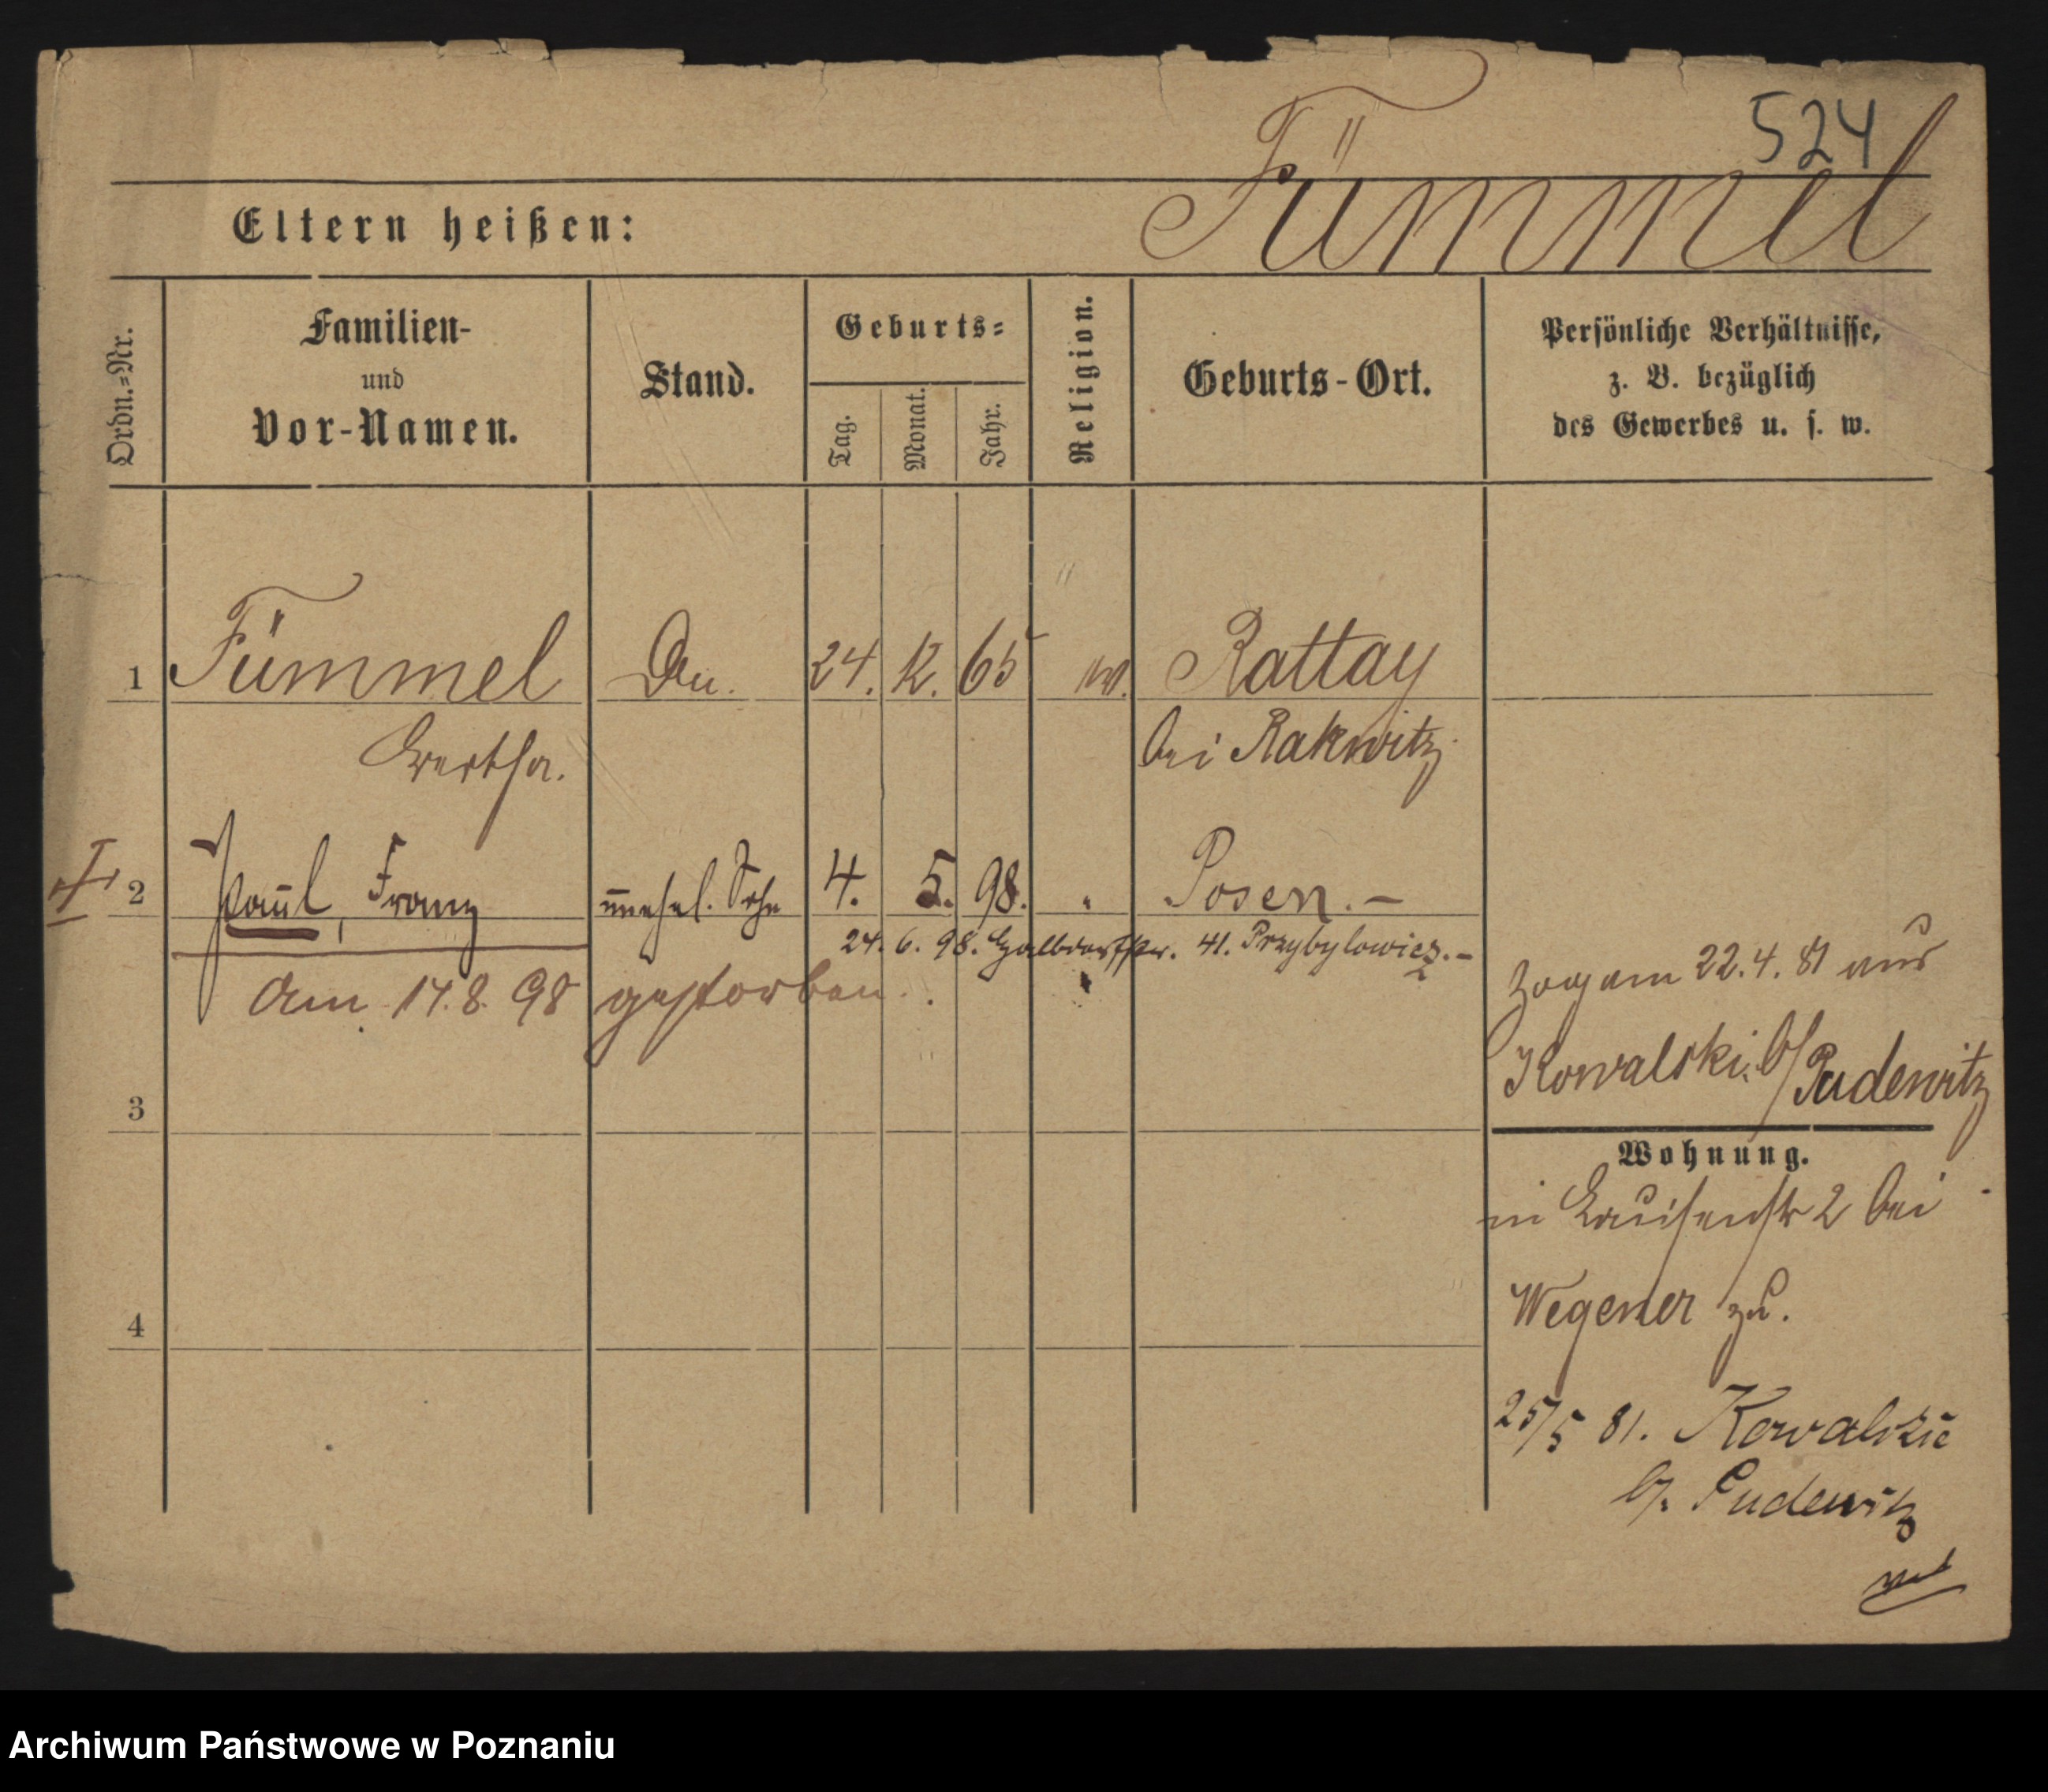 524
Fümmel
Eltern heißen:
Ordn.=Nr.
Familien-
und
Vor-Namen.
Stand.
Geburts=
Tag.
Monat.
Jahr.
Religion.
Geburts-Ort.
Persönliche Verhältnisse,
z. B. bezüglich
des Gewerbes u. s. w.
1 Fümmel 24. 12. 65 Rattay
Bertha. bei Rakwitz
2 Paul, Franz unehel. Sohn 4. 5. 98. " Posen. –
24. 6. 98. 41. Przybylowicz. –
Am 17. 8. 98 gestorben.
3
4
Zog am 22. 4. 81 aus
Kowalski, b/Pudewitz
Wohnung.
in Louisenstr 2 bei
Wegener zu.
25/5 81. Kowalskie
b/. Pudewitz
Archiwum Państwowe w Poznaniu